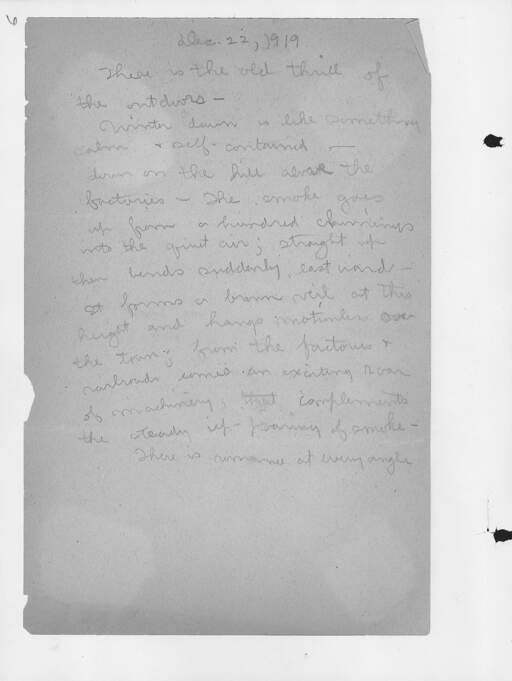 6
Dec. 22, 1919
There is the old thrill of
the outdoors —
Winter dawn is like something
calm & self-contained —
down on the hill above the
factories — The smoke goes
up from a hundred chimneys
into the quiet air; straight up
then bends suddenly eastward —
It forms a brown veil at this
height and hangs motionless over
the town; from the factories &
railroads comes an exciting roar
of machinery, that complements
the steady up-pouring of smoke —
There is romance at every angle